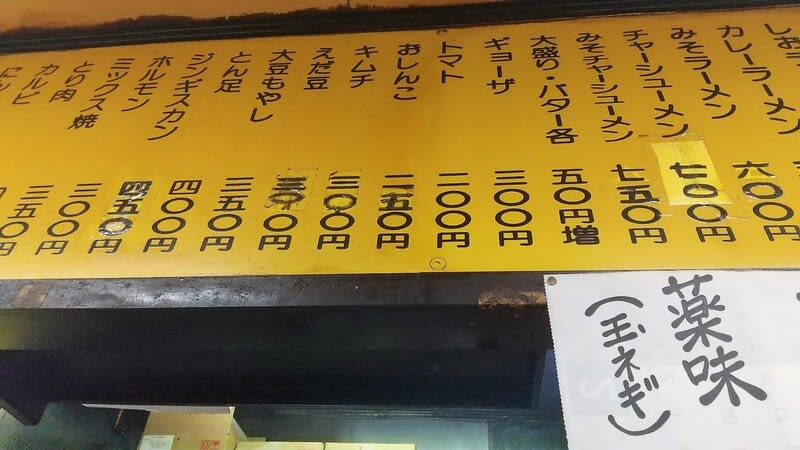 しお
カレーラーメン
みそラーメン
チャーシューメン
みそチャーシューメン
大盛り・バター各
ギョーザ
トマト
おしんこ
キムチ
えだ豆
大豆もやし
とん足
ジンギスカン
ホルモン
ミックス焼
とり肉
カルビ
六〇〇円
七〇〇円
七五〇円
五〇円増
三〇〇円
二〇〇円
二五〇円
三〇円
三〇円
三五〇円
四〇〇円
四五〇円
三〇〇円
三五〇円
薬味
(玉ネギ)